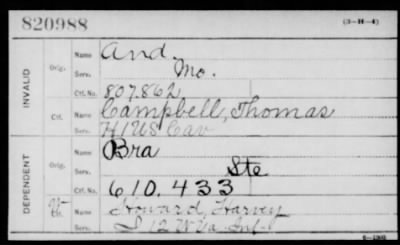 820988
(3-H-4)
INVALID
Orig.
Name And.
Serv. Mo.
Ctf. No. 807.862
Name Campbell, Thomas
Serv. H 1 US Cav
DEPENDENT
Orig.
Name Bra
Serv. Ste
Ctf. No. 610,433
Name Howard, Harvey
Serv. 12 W Va Inf